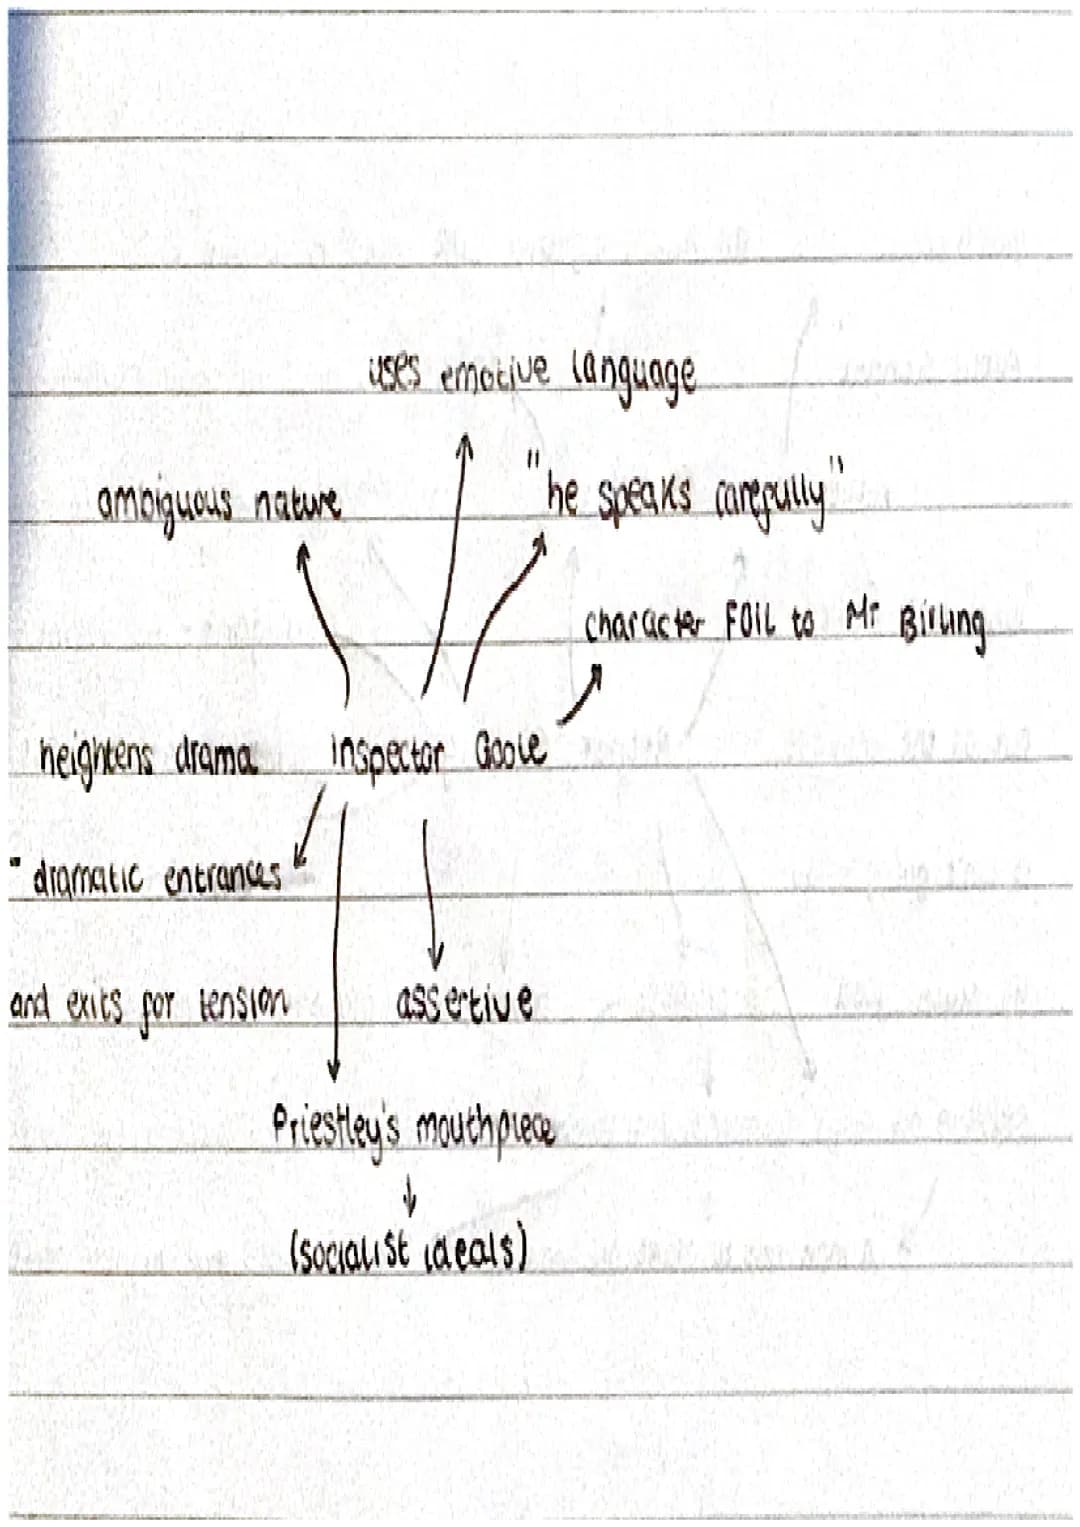 uses emotive language
ambiguous nature
"he speaks carefully"
character FOIL to Mr Birling
heightens drama
Inspector Goole
" dramatic entrances
and exits for tension
assertive
Priestley's mouthpiece
(socialist ideals)